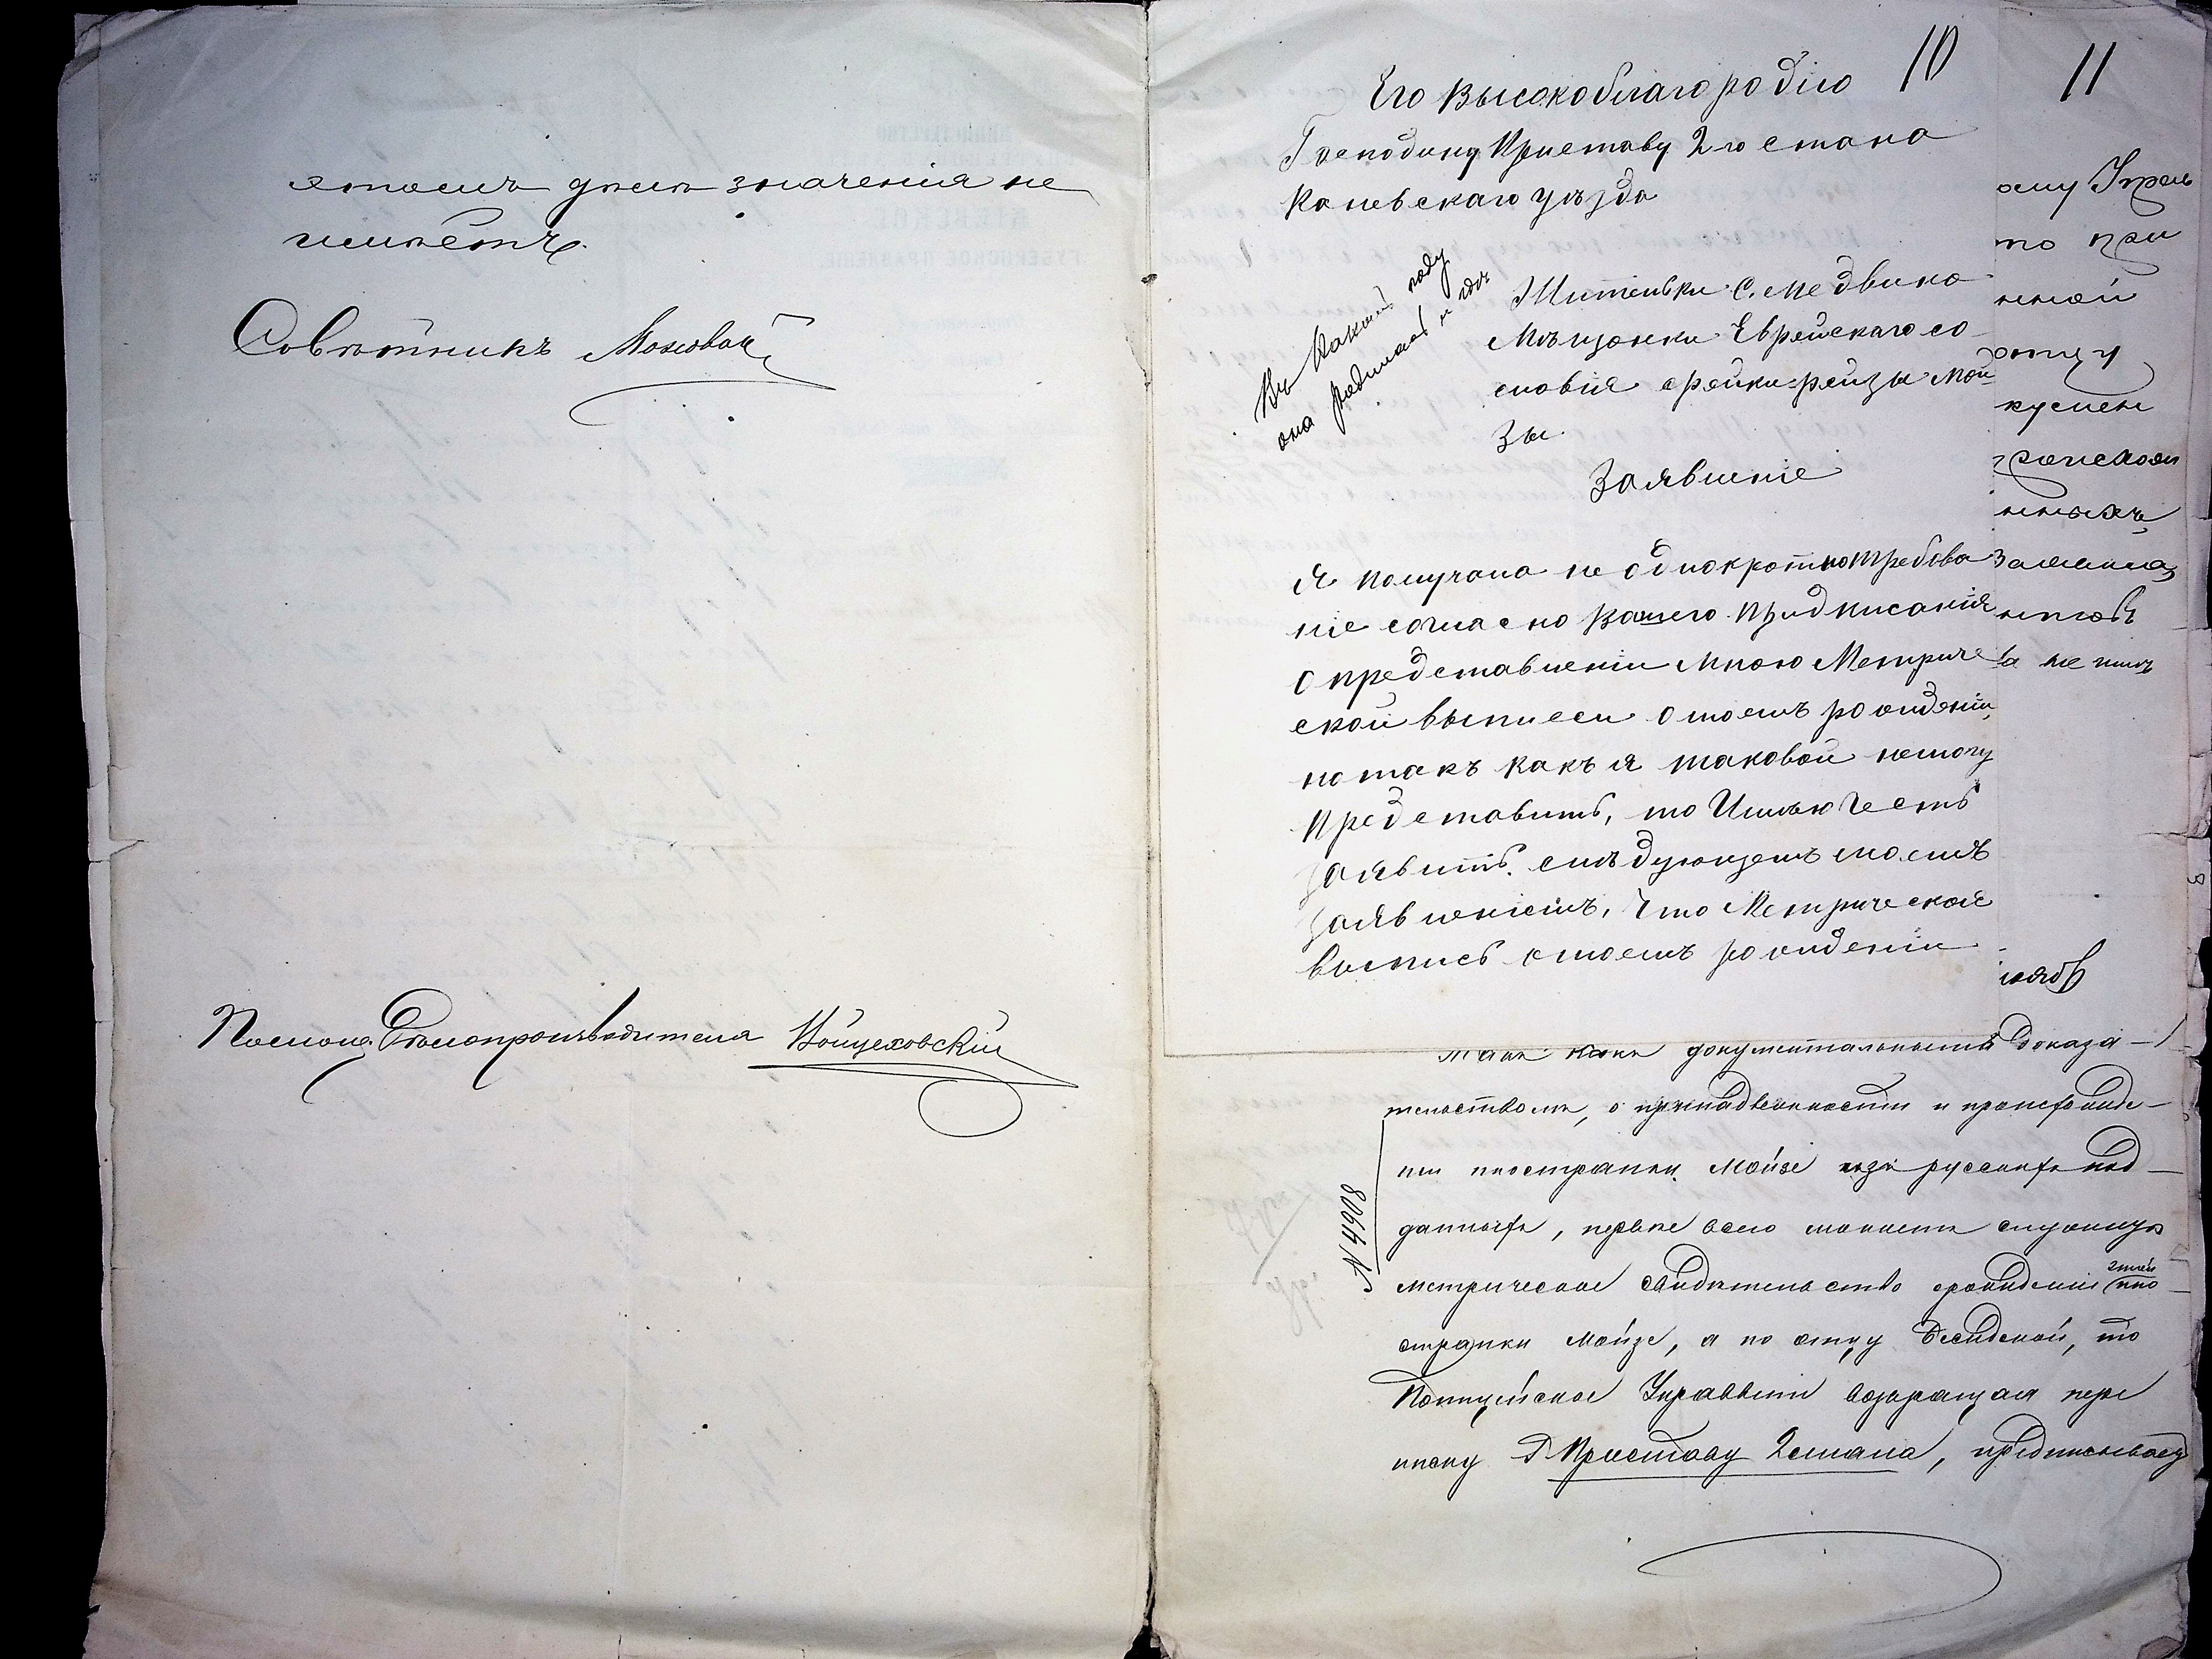 этомъ дѣлѣ значенія не
имѣетъ.
Совѣтникъ
Помощ. Дѣлопроизводителя Войцеховскій
10
Его Высокоблагородію
Господину Приставу 2го стана
Каневскаго уѣзда
Въ какомъ году
она родилась и гдѣ
Жительки С. Медвина
Мѣщанки Еврейскаго со
словія Фейки-Рейзы Мой
зы
Заявленіе
Я получала неоднократно требова
ніе согласно Вашего предписанія
о представленіи мною Метриче
ской выписи о моемъ рожденіи,
но такъ какъ я таковой немогу
представить, то Имѣю честь
заявить слѣдующемъ моемъ
заявленіемъ, что Метрической
выпись о моемъ рожденіи
11
ому
то при
нной
отцу
кумен
происхож
нныхъ
ва не имѣ
такъ какъ документальнымъ доказа-
тельствомъ, о принадлежности и происхожде-
ніи иностранки Мойзе изъ русскихъ под-
данныхъ, первѣе всего можетъ служить
метрическое свидѣтельство о рожденіи этой ино-
странки Мойзе, а по отцу то
Полицейское Управленіе возвращая пере
писку Г. Приставу 2 стана, предписываетъ
№ 4908